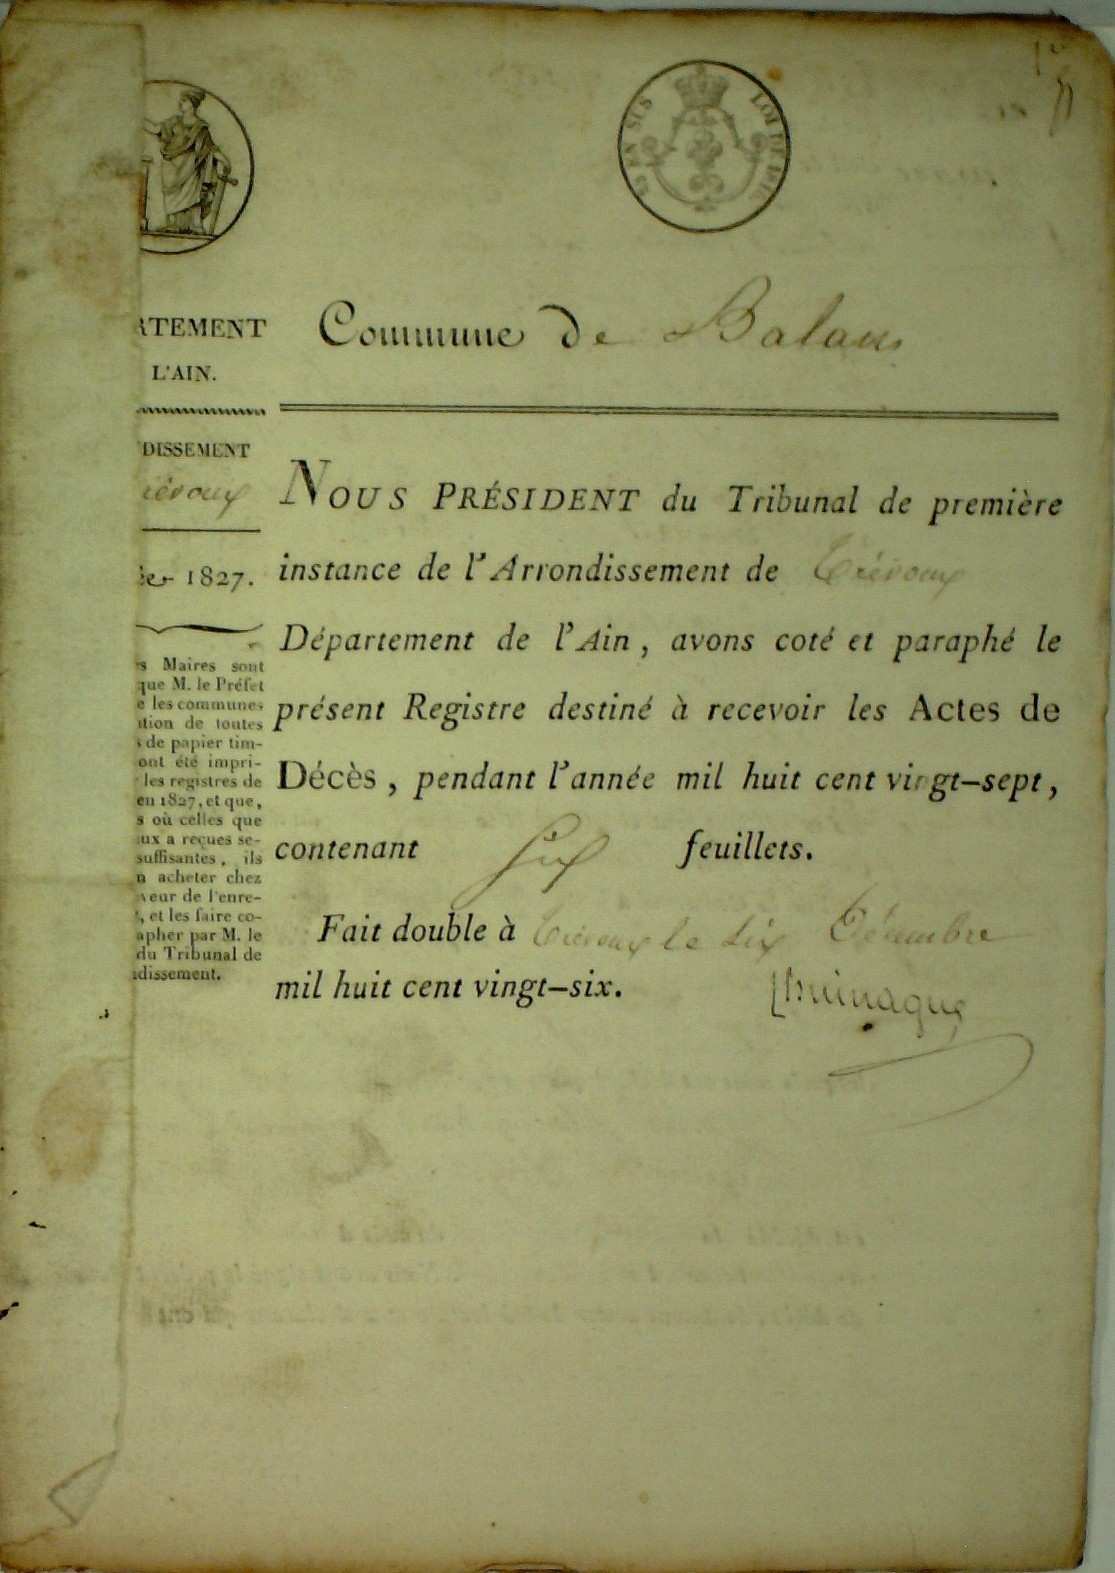 EN SUS
LOI DE 1816
ATEMENT
L'AIN.
DISSEMENT
révoux
1827.
s Maires sont
que M. le Préfet
e les communes
ition de toutes
s de papier tim-
ont été impri-
les registres de
en 1827, et que,
s où celles que
ux a reçues se-
suffisantes, ils
n acheter chez
veur de l'enre-
, et les faire co-
apher par M. le
du Tribunal de
dissement.
Commune de Balan
NOUS PRÉSIDENT du Tribunal de première
instance de l'Arrondissement de Trévoux
Département de l'Ain, avons coté et paraphé le
présent Registre destiné à recevoir les Actes de
Décès, pendant l'année mil huit cent vingt-sept,
contenant six feuillets.
Fait double à Trévoux le dix Décembre
mil huit cent vingt-six.